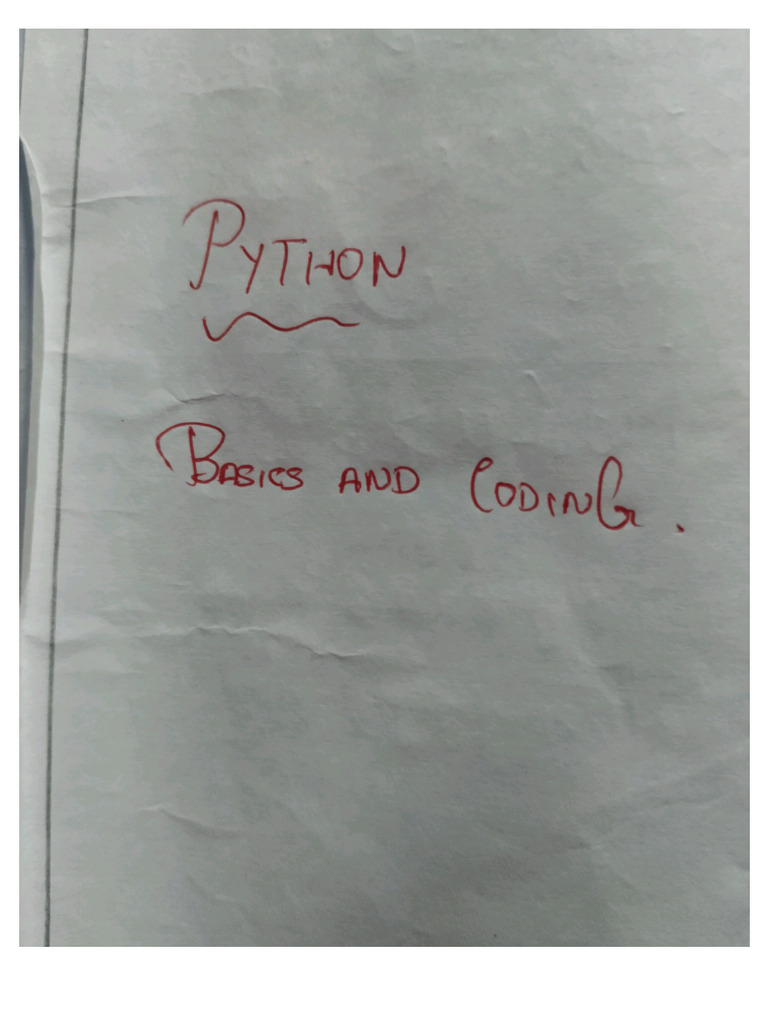 PYTHON
BASICS AND CODING.